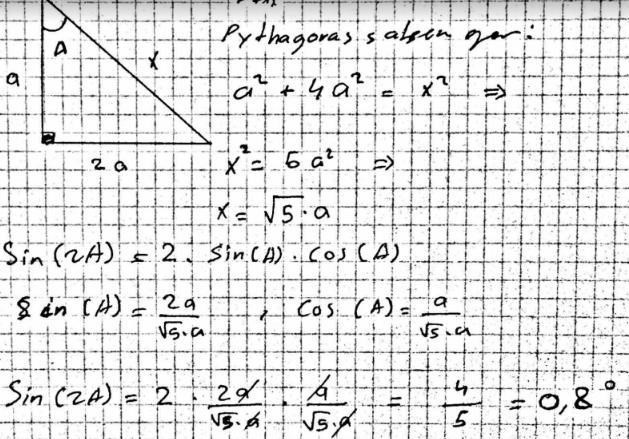 A
a
x
2a
Pythagoras satsen ger:
a² + 4a² = x² ⇒
x² = 5a² ⇒
x = √5 · a
Sin(2A) = 2 · Sin(A) · Cos(A)
Sin(A) = 2a/√5·a , Cos(A) = a/√5·a
Sin(2A) = 2 · 2a/√5·a · a/√5·a = 4/5 = 0,8°